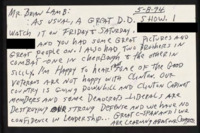 Mr. Brian Lamb: 5-8-94
As usual, a great D.D. show. I
watch it on Friday Saturday.
and you had some great pictures and
great people on. I also had two brothers in
combat - one in ChonDagh & the other in
Sicily. I'm happy to hear some of the good
veterans are not happy with Clinton. Our
country is going downhill and Clinton, Great
Members and some Democrats - Liberals are
destroying our strong defense and we have no
confidence in leadership...
Great C-SPAN and we
are learning about